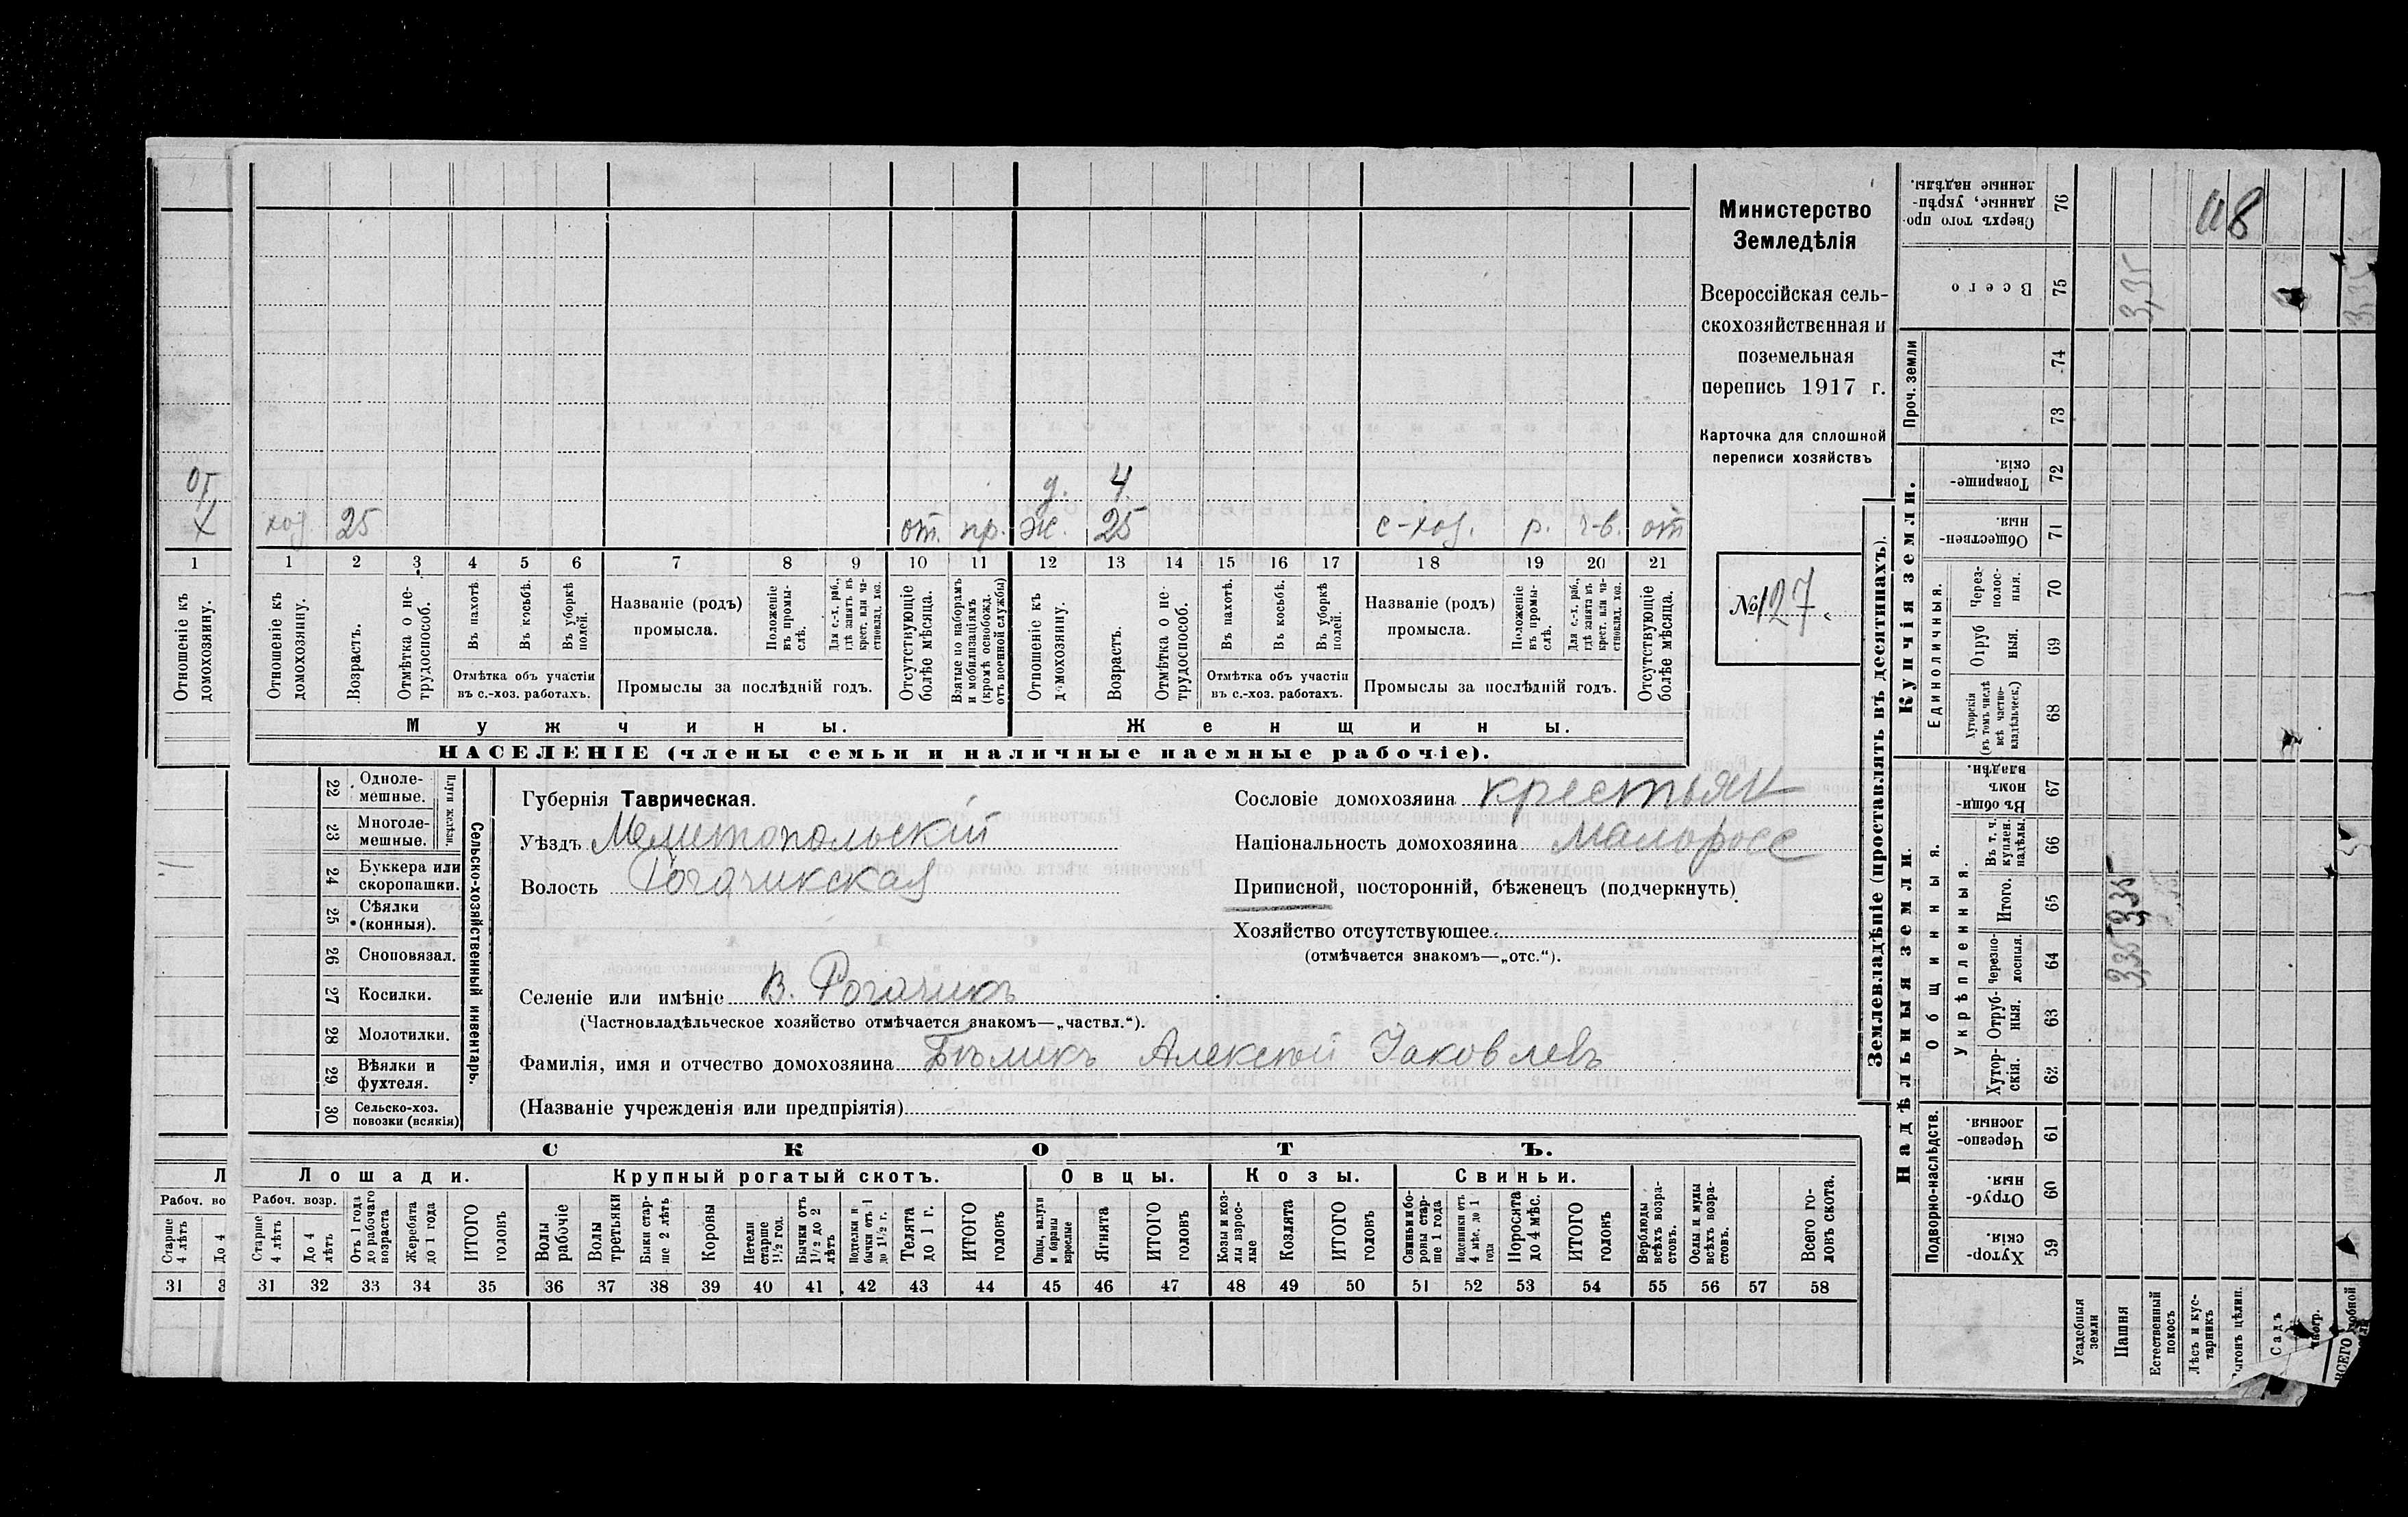 Министерство
Земледѣлія
Всероссійская сель-
скохозяйственная и
поземельная
перепись 1917 г.
Карточка для сплошной
переписи хозяйствъ
№ 127.
от
х
д. 4
ход 25 от. пр. ж. 25 с-ход. р. ч-в. от
1
1 2 3 4 5 6 7 8 9 10 11 12 13 14 15 16 17 18 19 20 21
Отношеніе къ домохозяину.
Отношеніе къ домохозяину.
Возрастъ.
Отмѣтка о не-трудоспособ.
Въ пахотѣ
Въ косьбѣ.
Въ уборкѣ полей.
Отмѣтка объ участіи
въ с.-хоз. работахъ.
Названіе (родъ)
промысла.
Положеніе въ промы-слѣ.
Для с.-х. раб., гдѣ занятъ въ крест. или ча-стновлад. хоз.
Промыслы за послѣдній годъ.
Отсутствующіе болѣе мѣсяца.
Взятые по наборамъ и мобилизаціямъ (кромѣ освобожд. отъ военной службы)
Отношеніе къ домохозяину.
Возрастъ.
Отмѣтка о не-трудоспособ.
Въ пахотѣ.
Въ косьбѣ.
Въ уборкѣ полей.
Отмѣтка объ участіи
въ с.-хоз. работахъ.
Названіе (родъ)
промысла.
Положеніе въ промы-слѣ.
Для с.-х. раб., гдѣ занята въ крест. или ча-стновлад. хоз.
Промыслы за послѣдній годъ.
Отсутствующіе болѣе мѣсяца.
Мужчины.
Женщины.
НАСЕЛЕНІЕ (члены семьи и наличные наемные рабочіе).
22 Одноле-мешные.
23 Многоле-мешные.
Плуги желѣзн.
24 Буккера или скоропашки.
25 Сѣялки (конныя).
26 Сноповязал.
27 Косилки.
28 Молотилки.
29 Вѣялки и фухтеля.
30 Сельско-хоз. повозки (всякія)
Сельско-хозяйственный инвентарь.
Губернія Таврическая.
Уѣздъ Мелитопольскій
Волость Рогачикская
Сословіе домохозяина крестьян
Національность домохозяина малоросс
Приписной, посторонній, бѣженецъ (подчеркнуть)
Хозяйство отсутствующее
(отмѣчается знакомъ—„отс.“).
Селеніе или имѣніе В. Рогачикъ
(Частновладѣльческое хозяйство отмѣчается знакомъ—„частвл.“).
Фамилія, имя и отчество домохозяина Бѣликъ Алексѣй Іаковлевъ
(Названіе учрежденія или предпріятія)
СКОТЪ.
Л
Рабоч. во
Старше 4 лѣтъ
До 4
31 3
Лошади.
Крупный рогатый скотъ.
Овцы.
Козы.
Свиньи.
Рабоч. возр.
Старше 4 лѣтъ
До 4 лѣтъ
Отъ 1 года до рабочаго возраста
Жеребята до 1 года
ИТОГО головъ
Волы рабочіе
Волы третьяки
Быки стар-ше 2 лѣтъ
Коровы
Нетели старше 1½ год.
Бычки отъ 1½ до 2 лѣтъ
Подтелки и бычки отъ 1 до 1½ г.
Телята до 1 г.
ИТОГО головъ
Овцы, валухи и бараны взрослые
Ягнята
ИТОГО головъ
Козы и коз-лы взрос-лые
Козлята
ИТОГО головъ
Свиньи и бо-ровы стар-ше 1 года
Подсвинки отъ 4 мѣс. до 1 года
Поросята до 4 мѣс.
ИТОГО головъ
Верблюды всѣхъ возра-стовъ.
Ослы и мулы всѣхъ возра-стовъ.
Всего го-ловъ скота.
31 32 33 34 35 36 37 38 39 40 41 42 43 44 45 46 47 48 49 50 51 52 53 54 55 56 57 58
Землевладѣніе (проставлять въ десятинахъ).
Купчія земли.
Надѣльныя земли.
Сверхъ того про-данные, укрѣп-ленные надѣлы. 76
Всего 75
Проч. земли
74
73
Товарище-скія. 72
Обществен-ныя. 71
Единоличныя.
Через-полос-ныя. 70
Отруб-ныя. 69
Хуторскія (въ томъ числѣ всѣ частно-владѣльческ.) 68
Общинныя.
Въ общин-номъ владѣн. 67
Укрѣпленныя.
Въ т. ч. куплен. надѣлы. 66
Итого. 65
Черезпо-лосныя. 64
Отруб-ныя. 63
Хутор-скія. 62
Подворно-наслѣдств.
Черезпо-лосныя. 61
Отруб-ныя. 60
Хутор-скія. 59
Усадебныя земли
Пашня
Естественный покосъ
Лѣсъ и кус-тарникъ
Садъ
3,35
3,35
3,35
3,35